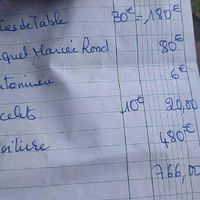 de Table 30€ = 180€
quet Mariée Rond 80€
6€
celets 10€ 20,00
480€
766,00